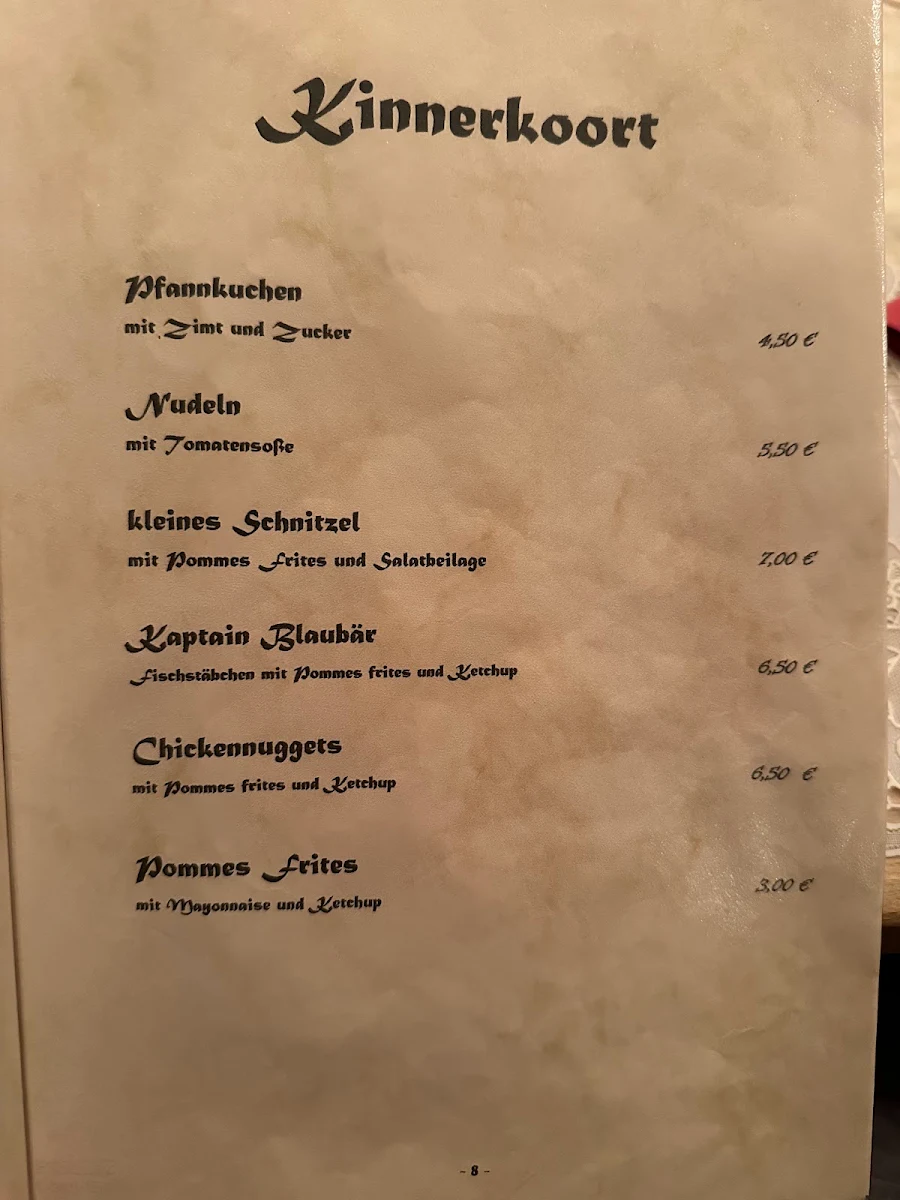 Kinnerkoort
Pfannkuchen
mit Zimt und Zucker
4,50 €
Nudeln
mit Tomatensoße
5,50 €
kleines Schnitzel
mit Pommes Frites und Salatbeilage
7,00 €
Kaptain Blaubär
Fischstäbchen mit Pommes frites und Ketchup
6,50 €
Chickennuggets
mit Pommes frites und Ketchup
6,50 €
Pommes Frites
mit Mayonnaise und Ketchup
3,00 €
- 8 -